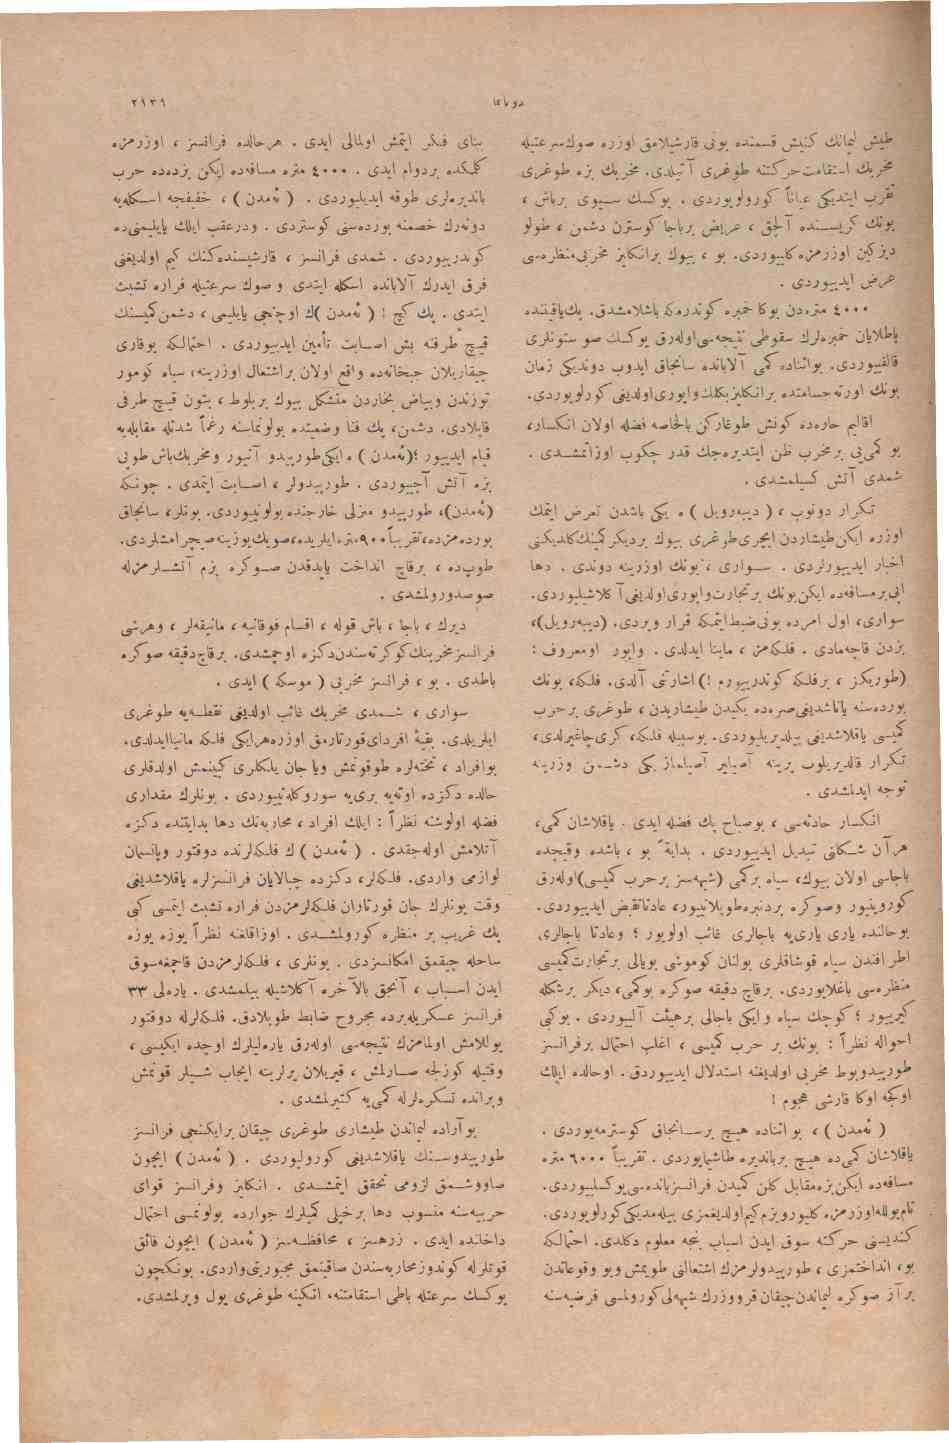 دوناما
٢١٣٩
طیش لیمانك كنیش قسمنده بونی قارشیلامق اوزره صوك‌سرعتیله
مخربك استقامت‌حركتنه طوغری آتیلدی. مخربك بزه طوغری
تقرب ایتدیكی عیاناً كورولویوردی . یوكسك سیوی برباش ،
بونك كریسنده آلچق ، عریض برباجا كوسترن دشمن ، طولو
دیزكین اوزرمزه كلییوردی. بو ، بیوك برانكلیز مخربی‌منظره‌سی
عرض ایدییوردی .
٤٠٠٠ متره‌دن بوكا خمبره كوندرمكه باشلامشدق. پك‌یاقیننده
پاطلایان خمبره‌لرك سقوطی نتیجه‌سی‌اوله‌رق یوكسك صو ستونلری
قالقییوردی. بواثناده كمی آلابانده سانجاق ایدوب دوندیكی زمان
بونك اورته‌جسامتده برانكلیزیلكلك‌واپوری‌اولدیغی كورلویوردی.
اقالیم حاره‌ده كونش طوغاركن بالخاصه فضله اولان انكسار،
بو كمی‌یی برمخرب ظن ایتدیره‌جك قدر چكوب اوزاتمشدی .
شمدی آتش كسیلمشدی .
تكرار دونوب ، ( دیبه‌رویل ) ه یكی باشدن تعرض ایتمك
اوزره ایكن‌طیشاردن ایچری‌طوغری بیوك بردیكركمینك‌كلدیكنی
اخبار ایدییورلردی . سواری ، بونك اوزرینه دوندی . دها
ایی برمسافه‌ده ایكن‌بونك برتجارت‌واپوری‌اولدیغی آ كلاشیلیوردی.
سواری، اول امرده بونی‌ضبط‌ایتمكه قرار ویردی. (دیبه‌رویل)،
بزدن قاچه‌مادی . فلكه‌مز ، ماینا ایدلدی . واپور اومعروف :
(طوریكز ، برفلكه كوندرییورم !) اشارتنی آلدی. فلكه، بونك
بورده‌سنه یاناشدیغی‌صره‌ده یكیدن طیشاریدن ، طوغری برحرب
كمیسی یاقلاشدیغی بیلدیریلیوردی. بوسبیله فلكه، كری‌چاغیرلدی،
تكرار قالدیریلوب یرینه آصیلیر آصیلماز یكی دشمن اوزرینه
توجه ایدلمشدی .
انكسار حادثه‌سی ، بوصباح پك فضله ایدی . یاقلاشان كمی،
هرآن شكلنی تبدیل ایدییوردی . بدایة ً بو ، باشده وقیچده
باجاسی اولان بیوك، سیاه بركمی (شبهه‌سز برحرب كمیسی)اوله‌رق
كورونیور وصوكره بردنبره‌طوپلانییور، عادتاتقبض ایدییوردی.
بوحالنده یاری یاری‌یه باجالری غائب اولویور ؛ وعادتا باجالری
اطرافندن سیاه قوشاقلری بولنان كوموشی بویالی برتجارت‌كمیسی
منظره‌سی باغلایوردی. برقاچ دقیقه صوكره بوكمی، دیكر برشكله
كیرییور ؛ كوچك سیاه وایكی باجالی برهیئت آلییوردی . بوكبی
احواله نظراً : بونك بر حرب كمیسی ، اغلب احتمال برفرانسز
طورپیدوبوط مخربی اولدیغنه استدلال ایدییوردق. اوحالده ایلك
اوكجه اوكا قارشی هجوم !
( ئه‌مدن ) ، بو اثناده هیچ برسانجاق كوسترمه‌یوردی .
یاقلاشان كمی‌ده هیچ برباندیره طاشیمایوردی . تقریباً ٦٠٠٠ متره
مسافه‌ده ایكن‌بزه‌مقابل كلن كمیدن فرانسزبانده‌سی‌یوكسلییوردی.
تام‌یوللەاوزرمزه كلییوروبزم‌كیم‌اولدیغمزی بیله‌مدیكی‌كورلویوردی.
كندیسنی حركته سوق ایدن اسباب بنجه معلوم دكلدی. احتمالكه
بو، انداختمزی ، طورپیدولرمزك اشتعالنی طویمش وبو وقوعاتدن
برآز صوكره لیماندن‌چیقان قرووزرك شبهه‌لی‌كورولمسی فرضیه‌سنه
بنای فكر ایتمش اولمالی ایدی . هرحالده فرانسز ، اوزرمزه
كلمكده بردوام ایدی . ٤٠٠٠ متره مسافه‌ده ایكن بزده‌ده حرب
باندیره‌لری طوقه ایدیلیوردی . ( ئه‌مدن ) ، خفیفجه اسكله‌یه
دونه‌رك خصمنه بورده‌سنی كوستردی . ودرعقب ایلك یایلیمنی‌ده
كوندرییوردی . شمدی فرانسز ، قارشیسنده‌كنك كیم اولدیغنی
فرق ایدرك آلابانده اسكله ایتدی و صوك سرعتیله فراره تشبث
ایتدی . پك كچ ! ( ئه‌مدن )ك اوچنجی یایلیمی ، دشمن‌كمیسنك
قیچ طرفنه بش اصابت تأمین ایدییوردی . احتمالكه یوقاری
چیقاریلان جبخانه‌ده واقع اولان براشتعال اوزرینه، سیاه كومور
توزندن وبیاض بخاردن متشكل بیوك بربلوط ، بتون قیچ طرفی
قاپلادی. دشمن، پك فنا وضعیتده بولونماسنه رغماً شدتله مقابله‌یه
قیام ایدییور ؛(ئه‌مدن ) ه ایكی‌طورپیدو آتیور ومخربك‌باش طوپی
بزه آتش آچییوردی . طورپیدولر ، اصابت ایتمدی . چونكه
(ئه‌مدن)، طورپیدو منزلی خارجنده بولونییوردی. بونلر، سانجاق
بورده‌مزده،تقریباً٩٠٠متره‌ایلریده،صویك‌یوزینه‌صیچرامشلردی.
طوپ‌ده ، برقاچ انداخت یاپدقدن صوكره بزم آتشلرمزله
صوصدورولمشدی .
دیرك ، باجا ، باش قوله ، اقسام فوقانیه ، مانیقه‌لر ، وهرشی
فرانسزمخربنك‌كوكرته‌سندن‌دكزه اوچمشدی. برقاچ‌دقیقه صوكره
باطدی . بو ، فرانسز مخربی ( موسكه ) ایدی .
سواری ، شمدی مخربك غائب اولدیغی نقطه‌یه طوغری
ایلریلدی. بقیهٔ افرادی‌قورتارمق اوزره‌هرایكی فلكه ماینا‌ایدلدی.
بوافراد ، تخته‌لره طوقونمش ویا جان یلكلری كیینمش اولدقلری
حالده دكزده اوته‌یه بری‌یه سوروكله‌نییوردی . بونلرك مقداری
فضله اولوشنه نظراً : ایلك افراد ، محاربه‌نك دها بدایتنده دكزه
آتلامش اوله‌جقدی . ( ئه‌مدن ) ك فلكه‌لرنده دوقتور ویانسمان
لوازمی واردی. فلكه‌لر، دكزده چبالایان فرانسزلره یاقلاشدیغی
وقت بونلرك جان قورتاران فلكه‌لرمزدن فراره تشبث ایتمسی كبی
پك غریب بر منظره كورولمشدی . اوزاقلغنه نظراً یوزه یوزه
ساحله چیقمق امكانسزدی . بونلری ، فلكه‌لرمزدن قاچمغه‌سوق
ایدن اسباب ، آنجق بالآخره آكلاشیله بیلمشدی . یاره‌لی ٣٣
فرانسز عسكریله‌برده مجروح ضابط طوپلادق. فلكه‌لرله دوقتور
یوللامش اولمامزك نتیجه‌سی اوله‌رق یاره‌لیلرك اوچده ایكیسی ،
وقتیله كوزلجه صارلمش ، قیریلان یرلرینه ایجاب شیلر قونمش
وبرانده تسكره‌لرله كمی‌یه كتیرلمشدی .
بوآراده لیماندن طیشاری طوغری چیقان برایكنجی فرانسز
طورپیدوسنك یاقلاشدیغی كورولیوردی . ( ئه‌مدن ) ایچون
صاووشمق لزومی تحقق ایتمشدی . انكلیز وفرانسز قوای
حربیه‌سنه منسوب دها برخیلی كمیلرك جوارده بولونمسی احتمال
داخلنده ایدی . زرهسز ، محافظه‌سز ( ئه‌مدن ) ایچون فائق
قوتلرله كوندوزمحاربه‌سندن صاقینمق مجبوریتی‌واردی. بونكچون
یوكسك سرعتله باطی استقامتنه، انكینه طوغری یول ویرلمشدی.